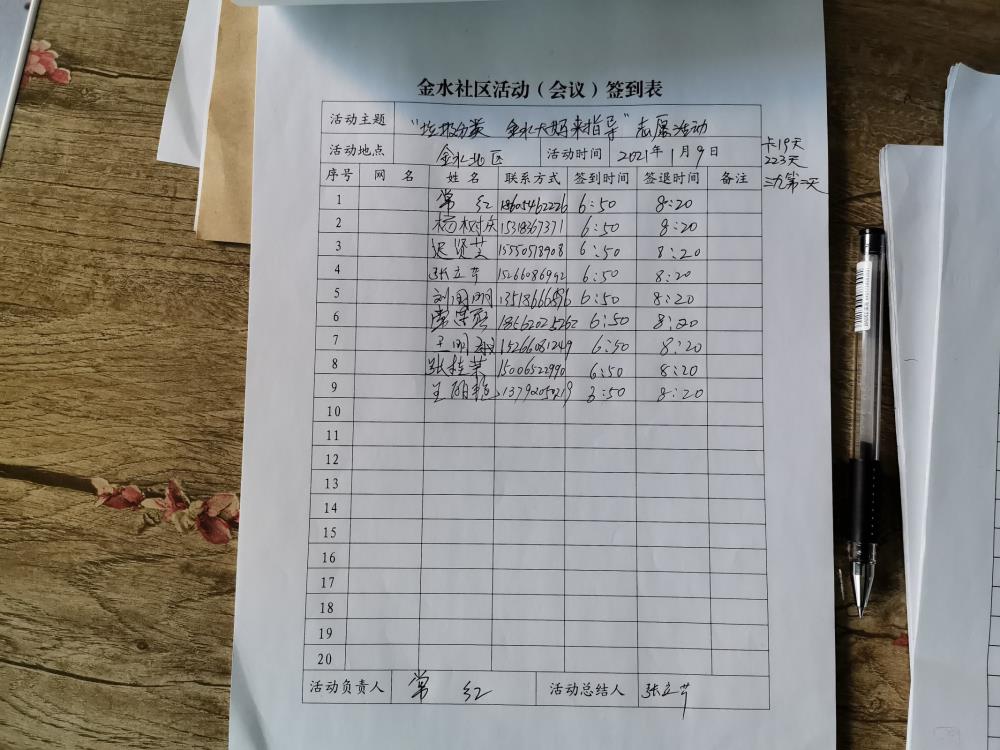 金水社区活动（会议）签到表
活动主题 "垃圾分类 金水大妈来指导"志愿活动
活动地点 金水北区 活动时间 2021年1月9日
卡19天
223天
三九第一天
序号 网 名 姓 名 联系方式 签到时间 签退时间 备注
1 常 红 18605462226 6:50 8:20
2 杨树庆 15318367371 6:50 8:20
3 迟贤芝 15550578908 6:50 8:20
4 张立芹 15266086992 6:50 8:20
5 刘国明 6:50 8:20
6 18562025262 6:50 8:20
7 15266081249 6:50 8:20
8 张桂荣 15006522990 6:50 8:20
9 王明艳 8:20
10
11
12
13
14
15
16
17
18
19
20
活动负责人 常 红 活动总结人 张立芹